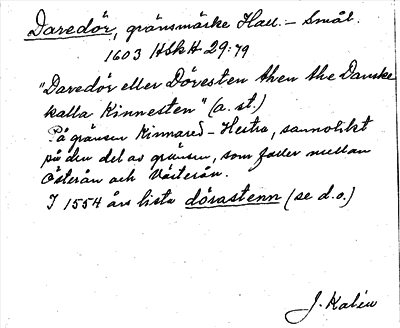 Daredör, gränsmärke Hall. - Smål.
1603 HSkH 29:79
"Daredör eller Dövesten then the Danske
kalla Kinnesten" (a. st.)
På gränsen Kinnared - Hestra, sannolikt
på den del av gränsen, som faller mellan
Österån och Västerån.
I 1554 års lista dörastenn (se d.o.)
J. Kalén